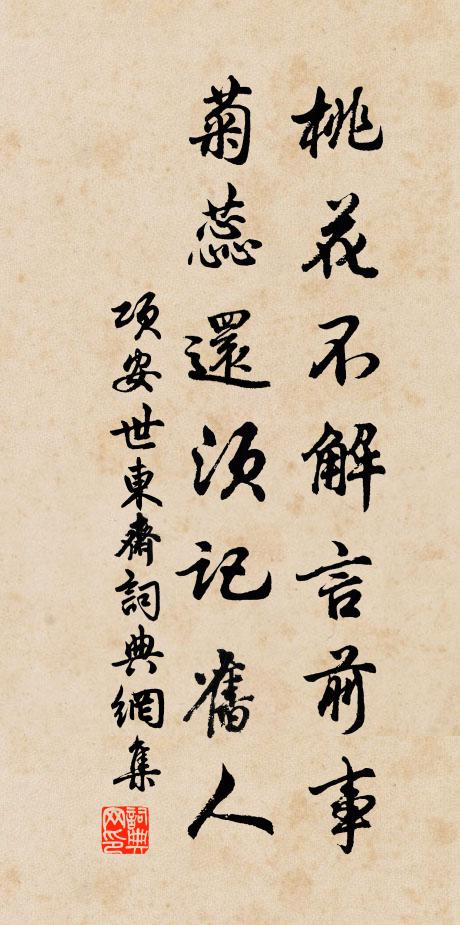 桃花不解言前事
菊蕊還須記舊人
項安世東齋詞典網集
詞典網印